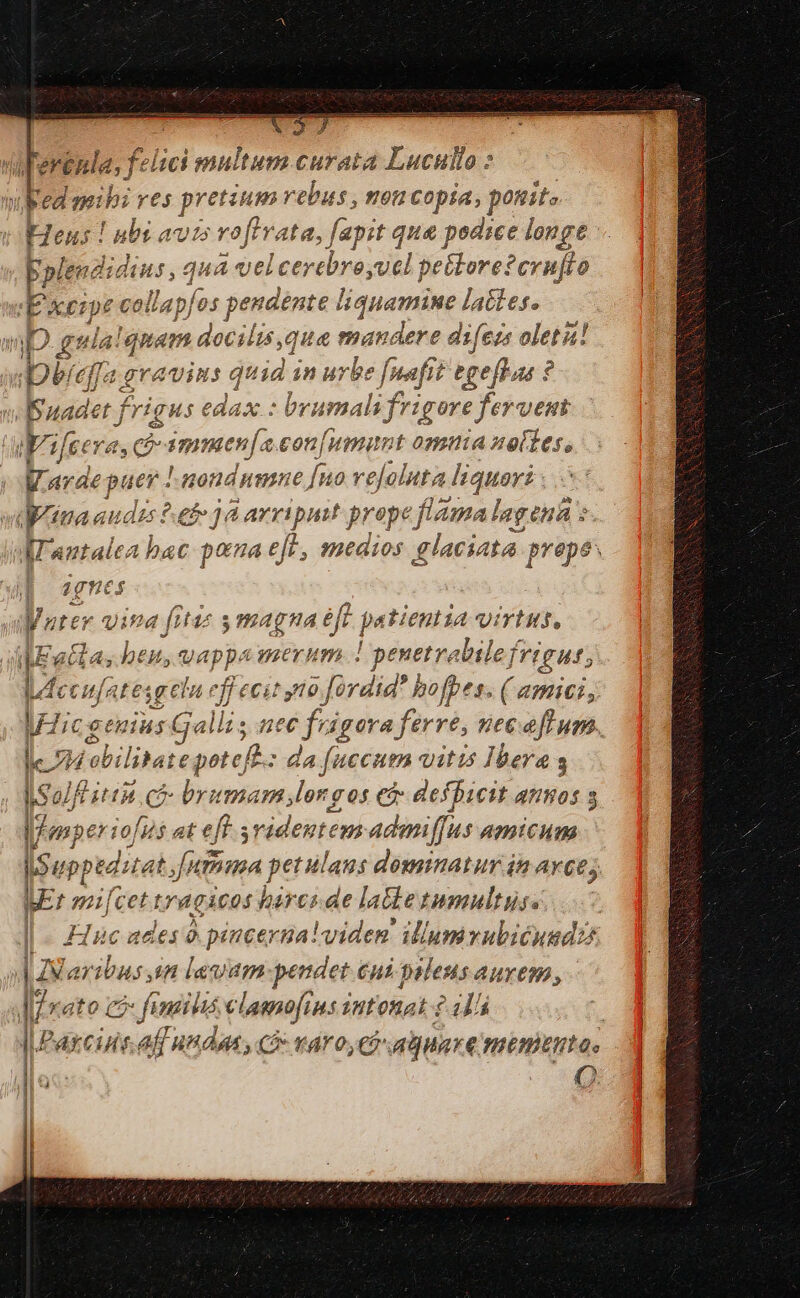 ( 5 )
Fercula, felici multum curata Lucullo :
Sed mihi res pretium rebus, non copia, ponit.
Heus ! ubi avis rostrata, sapit quæ podice longe
Splendidius, quã vel cerebro, vel pectore? crusto
Excipe collapsos pendente liquamine lactes.
O gula! quam docilis, quæ mandere discis oletũ!
Obsessa gravius quid in urbe suasit egestas ?
Suadet frigus edax : brumali frigore fervent
Viscera, & immensa consumunt omnia noctes.
Tarde puer ! nondumne suo resoluta liquori
Vina audis ? & jã arripuit prope flãma lagenã :
Tantalea hac pœna est, medios glaciata prope
ignes
Inter vina sitis ; magna est patientia virtus.
Facta, heu, vappa merum ! penetrabile frigus,
Accusates, gelu effecit, nõ sordid' hospes. ( amici,
Hic genius Gallis nec frigora ferre, nec æstum
e Mobilitate potest.: da succum vitis Ibera ;
Solstitiũ & brumam, longos & despicit annos ;
Imperiosus at est ; ridentem admissus amicum
Suppeditat, summa petulans dominatur in arce,
Et miscet tragicos hirci de lacte tumultus.
Huc ades ô pincerna! viden' illum rubicundis
Naribus, in lævam pendet cui pileus aurem,
Irato & similis clamosius intonat ? illi
Parcius affundas, & raro, & aquare memento.
O